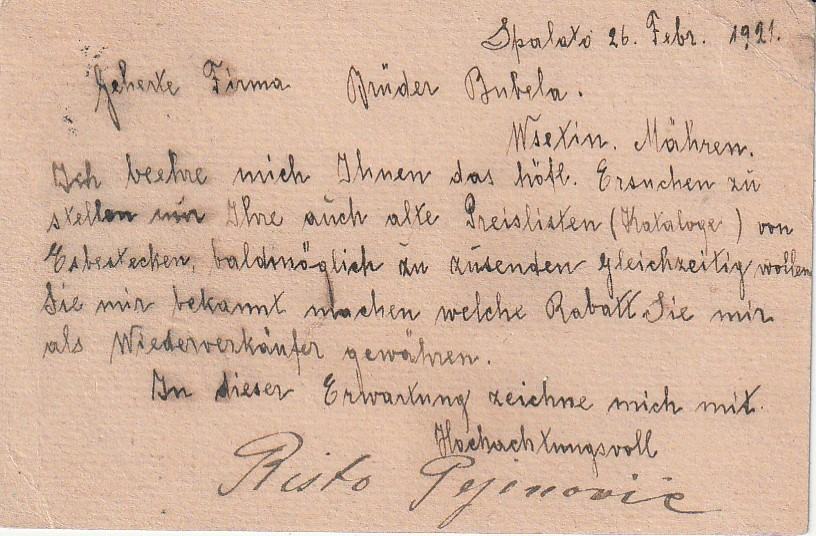 Spalato 26. Febr. 1921.
Geherte Firma Brüder Bubela.
Wsetin. Mähren.
Ich beehre mich Ihnen das höfl. Ersuchen zu
stellen mir Ihre auch alte Preislisten (Kataloge) von
Esbestecken, baldmöglich zu zusenden gleichzeitig wollen
Sie mir bekannt machen welche Rabatt Sie mir
als Wiederverkäufer gewähren.
In dieser Erwartung zeichne mich mit
Hochachtungsvoll
Risto Pejinović